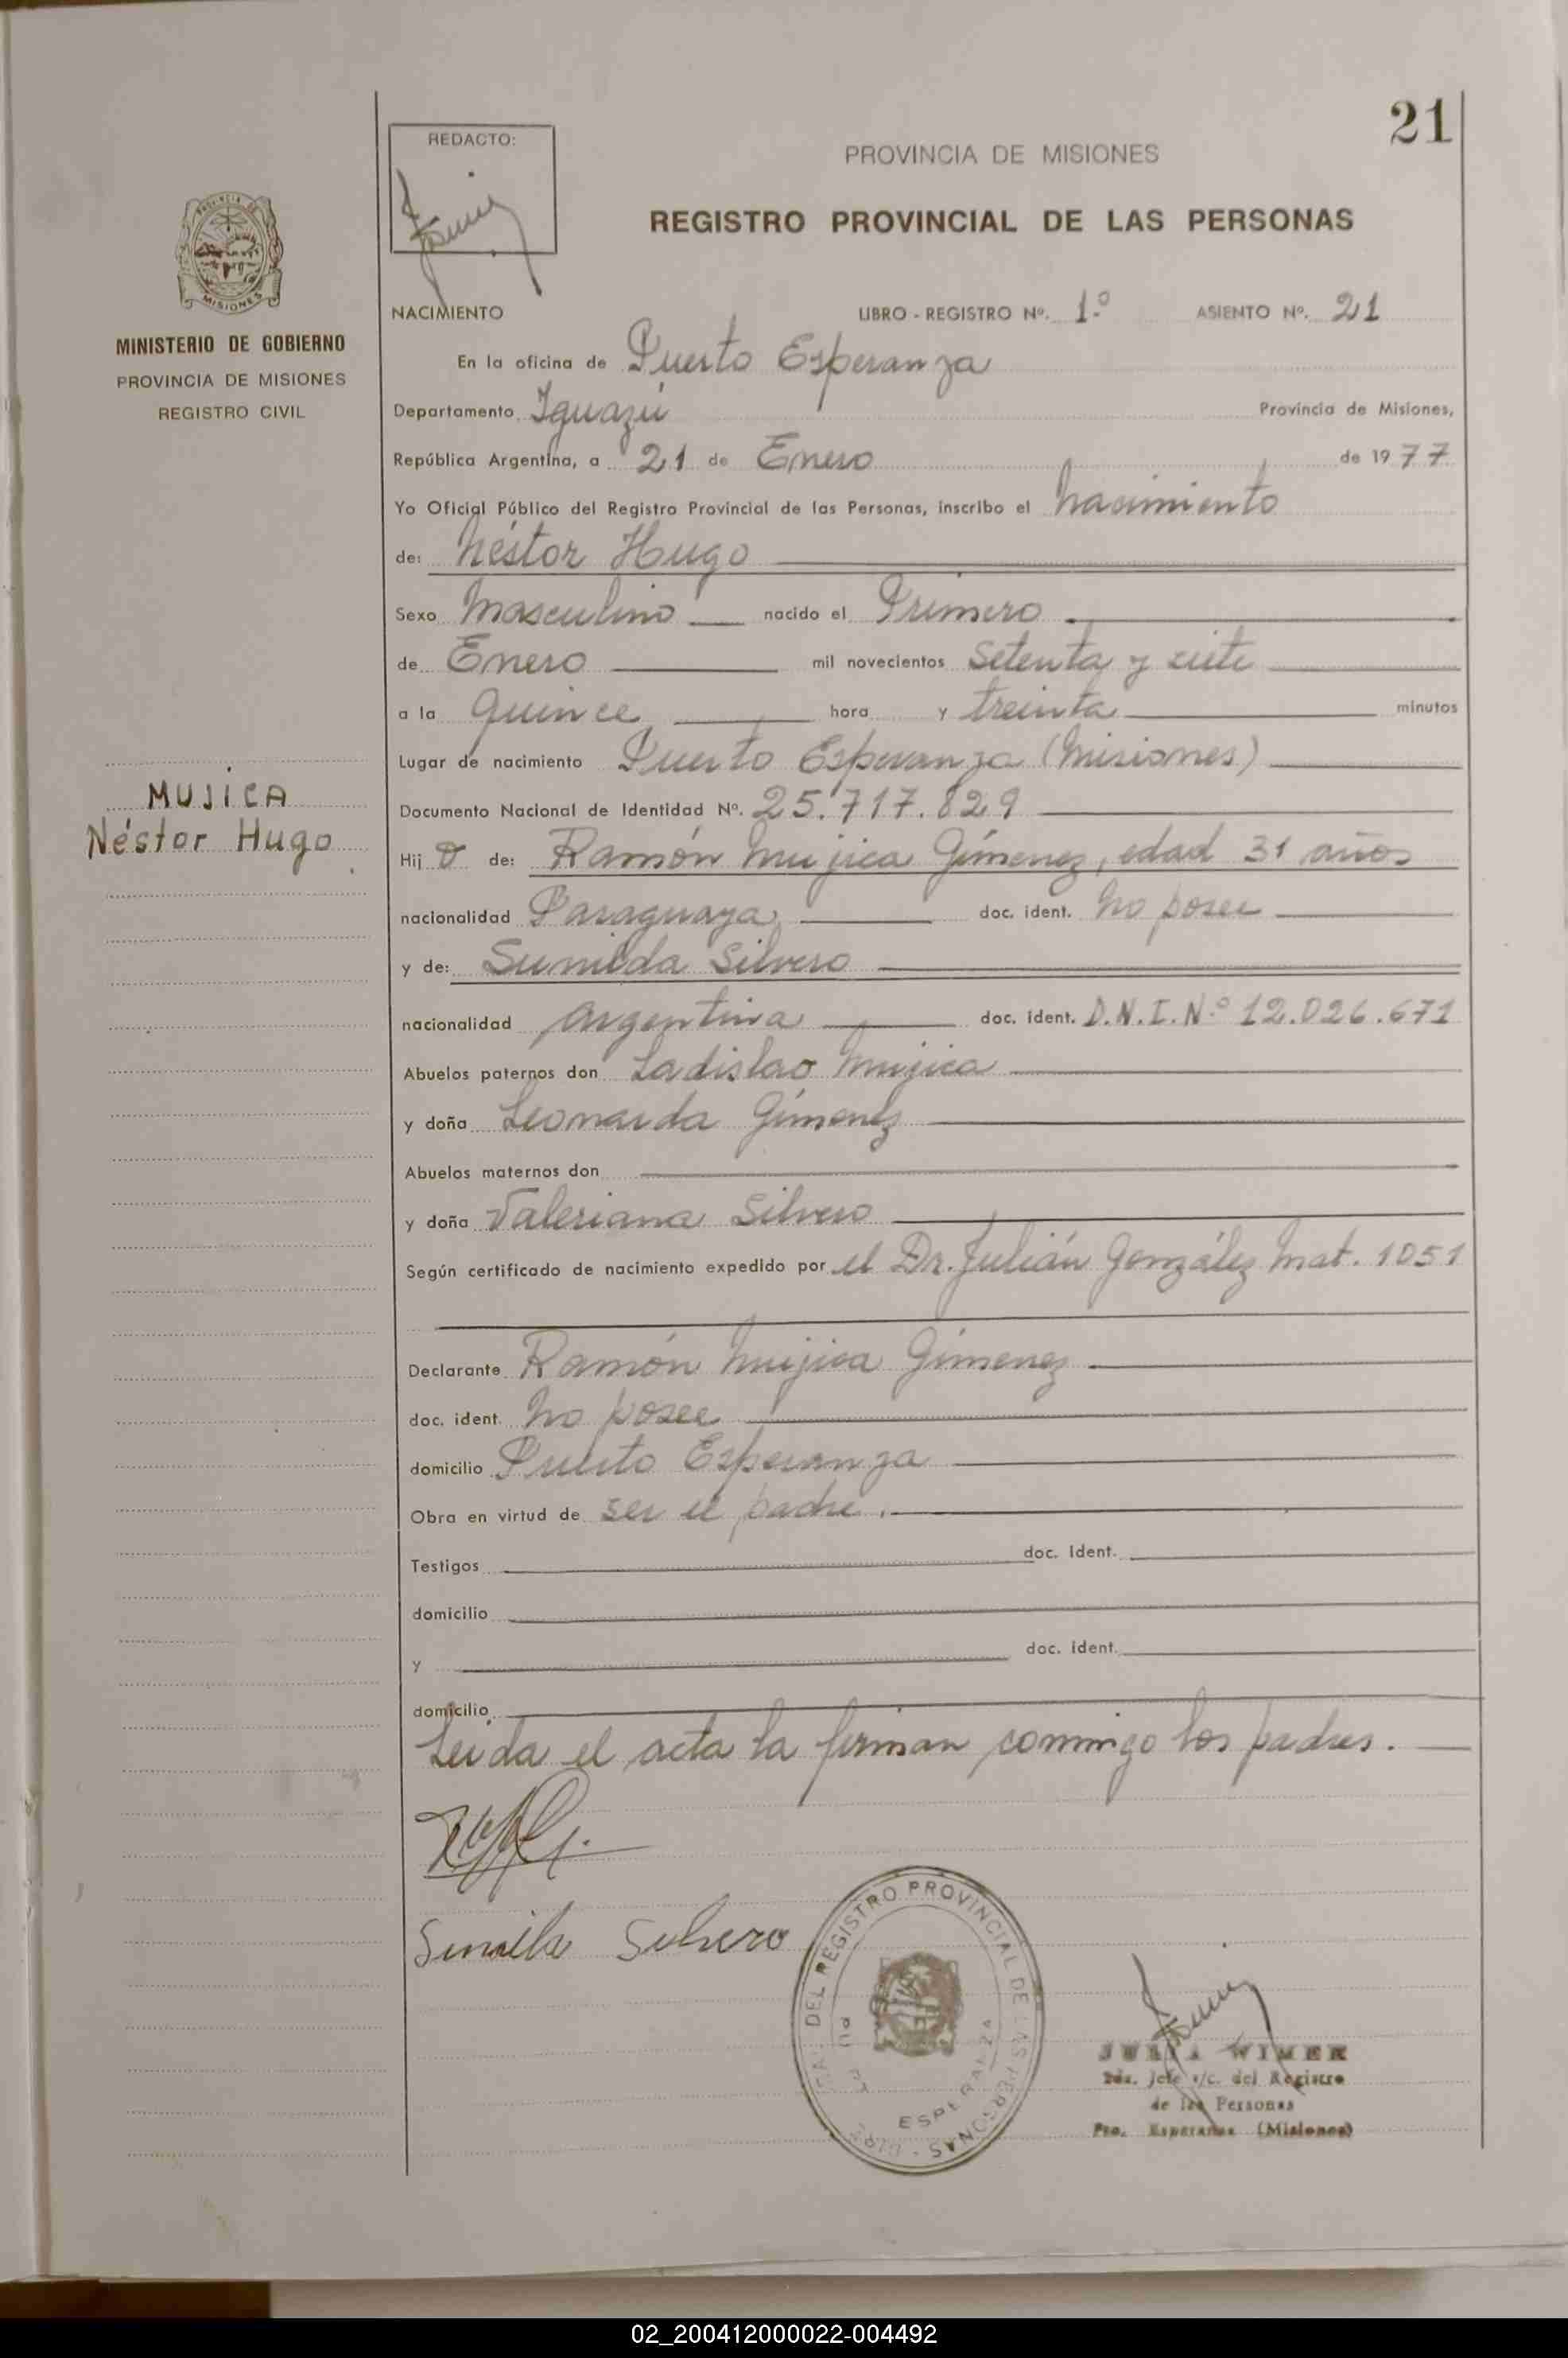 21
REDACTO:
PROVINCIA DE MISIONES
REGISTRO PROVINCIAL DE LAS PERSONAS
MISIONES
MINISTERIO DE GOBIERNO
PROVINCIA DE MISIONES
REGISTRO CIVIL
MUJICA
Néstor Hugo
NACIMIENTO LIBRO - REGISTRO Nº. 1º ASIENTO Nº. 21
En la oficina de Puerto Esperanza
Departamento Iguazú Provincia de Misiones,
República Argentina, a 21 de Enero de 1977
Yo Oficial Público del Registro Provincial de las Personas, inscribo el nacimiento
de: Néstor Hugo
Sexo Masculino nacido el Primero
de Enero mil novecientos Setenta y siete
a la quince hora y treinta minutos
Lugar de nacimiento Puerto Esperanza (Misiones)
Documento Nacional de Identidad Nº. 25.717.829
Hijo de: Ramón Mujica Gímenez, edad 31 años
nacionalidad Paraguaya doc. ident. No posee
y de: Sunilda Silvero
nacionalidad Argentina doc. ident. D.N.I.N.º 12.026.671
Abuelos paternos don Ladislao Mujica
y doña Leonarda Gímenez
Abuelos maternos don
y doña Valeriana Silvero
Según certificado de nacimiento expedido por el Dr. Julián González Mat. 1051
Declarante Ramón Mujica Gímenez
doc. ident. No posee
domicilio Puerto Esperanza
Obra en virtud de ser el padre.
Testigos doc. ident.
domicilio
y doc. ident.
domicilio
Leida el acta la firman conmigo los padres.
Silvero
DEL REGISTRO PROVINCIAL DE LAS PERSONAS
ESPERANZA
JULIA WIMER
Jefe e/c. del Registro
de las Personas
Pto. Esperanza (Misiones)
02_200412000022-004492